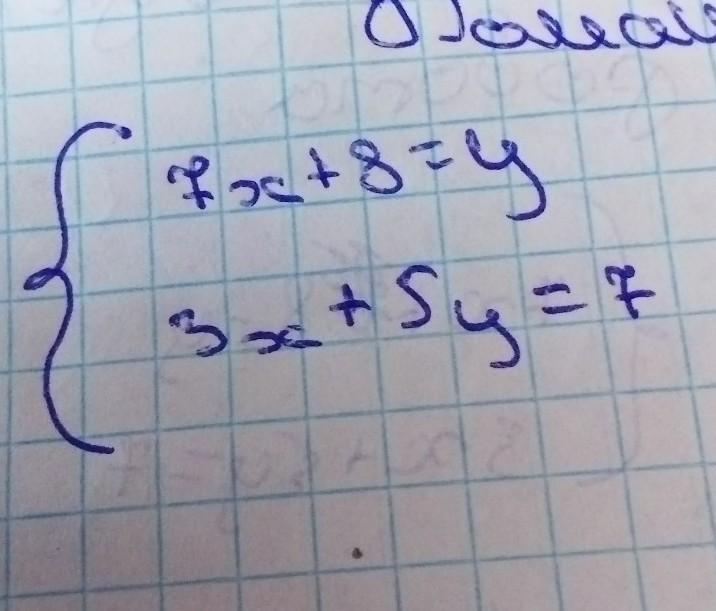 7x+8=y
3x+5y=7